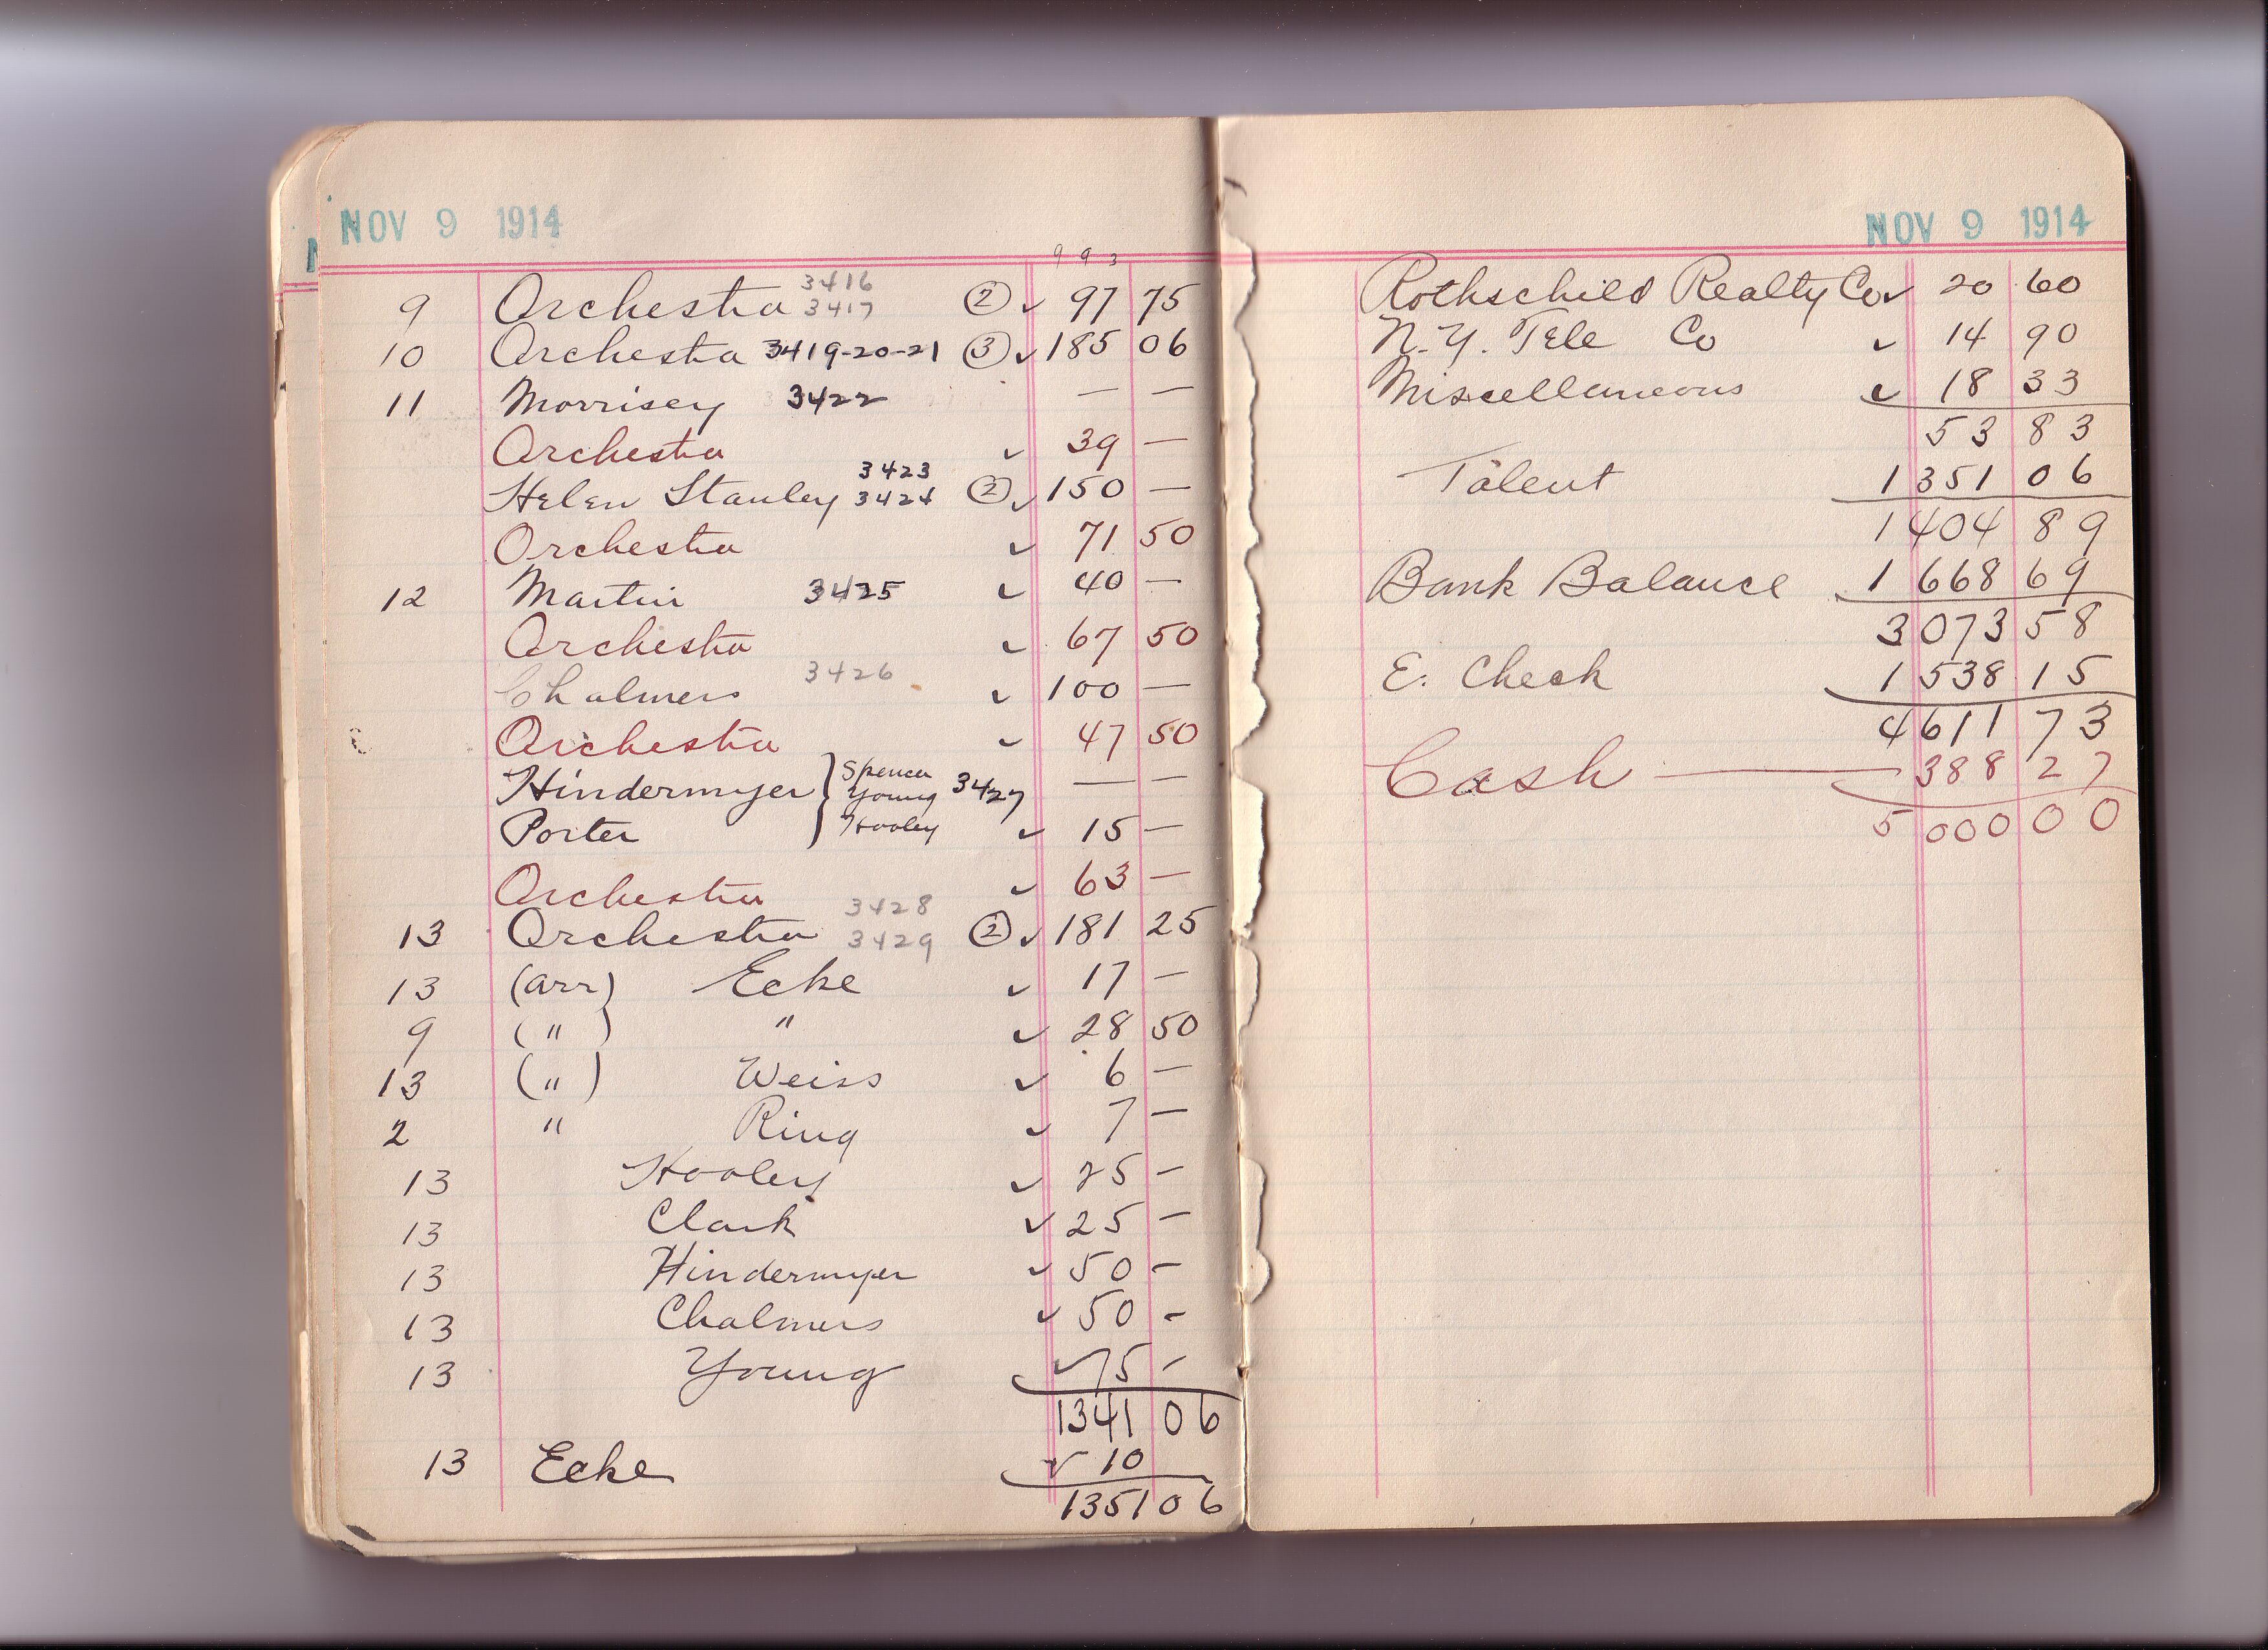 NOV 9 1914
9 9 3
3416
9 Orchestra 3417 ② ✓ 97 75
10 Orchestra 3419-20-21 ③ ✓ 185 06
11 Morrisey 3422 — —
Orchestra ✓ 39 —
3423
Helen Stanley 3424 ② ✓ 150 —
Orchestra ✓ 71 50
12 Martin 3425 ✓ 40 —
Orchestra ✓ 67 50
Chalmers 3426 ✓ 100 —
Orchestra ✓ 47 50
Spencer
Hindermyer } Young 3427 — —
Porter Hooley ✓ 15 —
Orchestra ✓ 63 —
3428
13 Orchestra 3429 ② ✓ 181 25
13 (arr) Ecke ✓ 17 —
9 ( " ) " ✓ 28 50
13 ( " ) Weiss ✓ 6 —
2 " Ring ✓ 7 —
13 Hooley ✓ 25 —
13 Clark ✓ 25 —
13 Hindermyer ✓ 50 -
13 Chalmers ✓ 50 -
13 Young ✓ 75 -
1341 06
13 Ecke ✓ 10
1351 06
NOV 9 1914
Rothschild Realty Co ✓ 20 60
N.Y. Tele Co ✓ 14 90
Miscellaneous ✓ 18 33
53 83
Talent 1351 06
1404 89
Bank Balance 1668 69
3073 58
E. Check 1538 15
4611 73
Cash — 388 27
5000 00